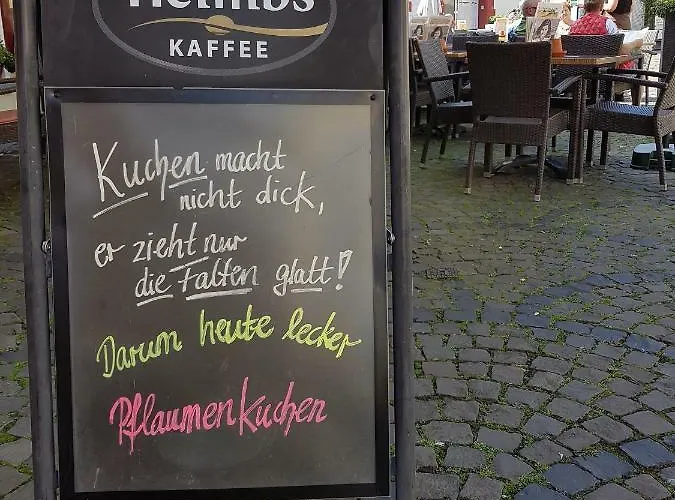 Heimbs
KAFFEE
Kuchen macht
nicht dick,
er zieht nur
die Falten glatt!
Darum heute lecker
Pflaumenkuchen